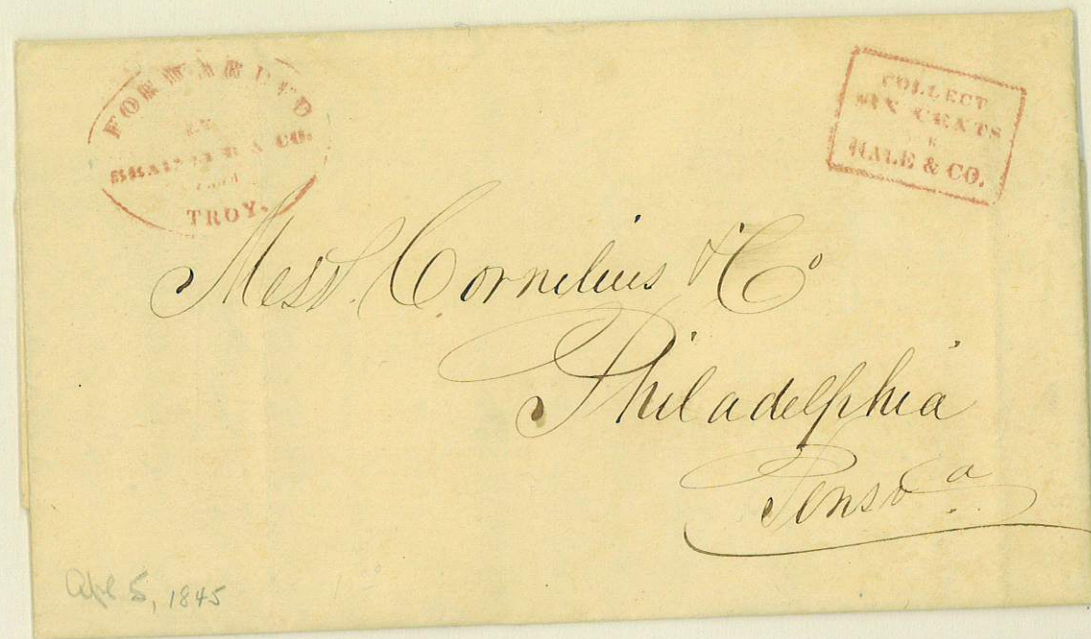 FORWARDED
BY
& CO.
FROM
TROY.
COLLECT
SIX CENTS
HALE & CO.
Messrs. Cornelius & Co
Philadelphia
Pensva
Apl 5, 1845